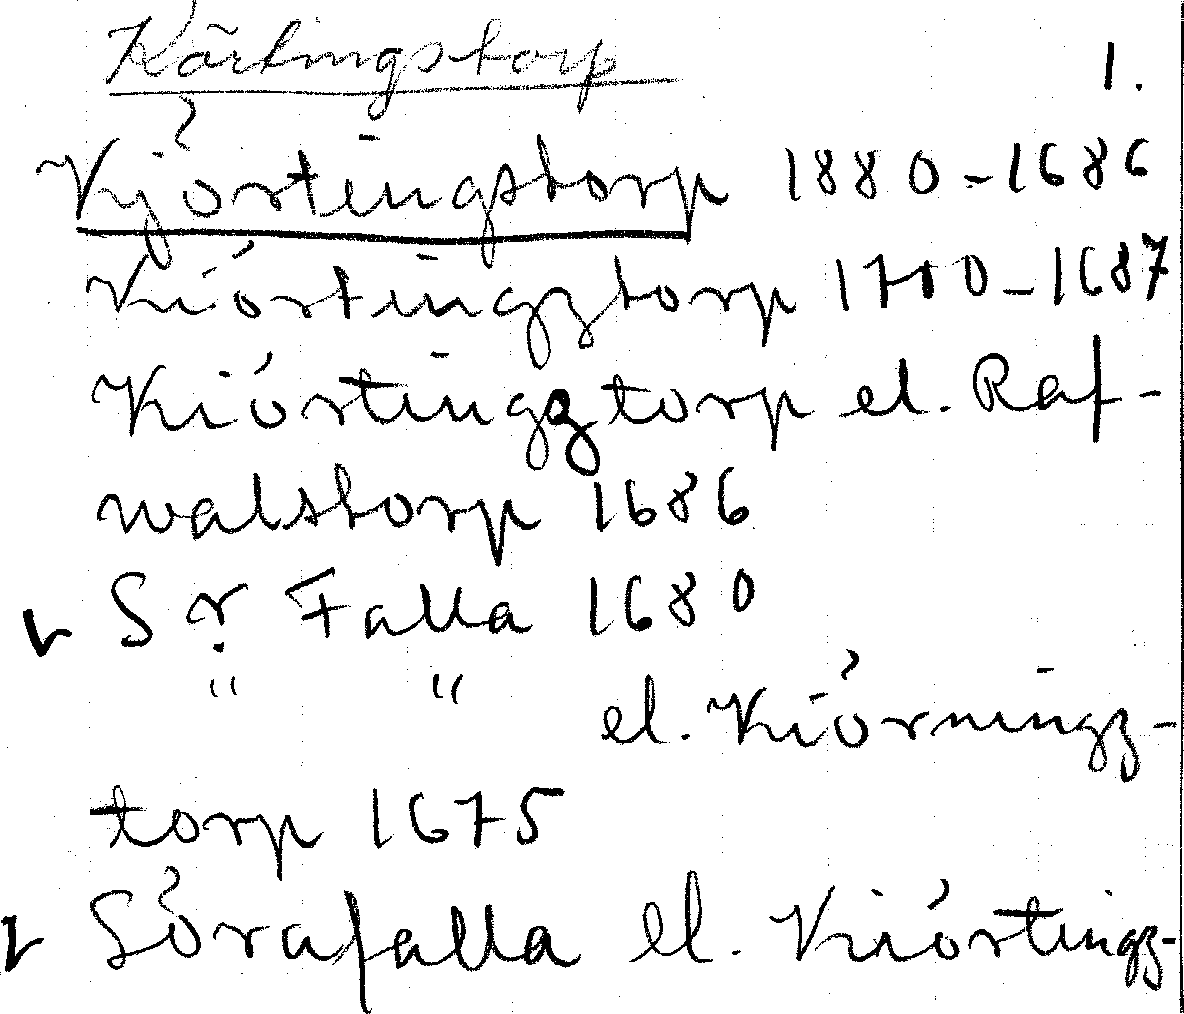 Körtingstorp 1.
Kjörtingstorp 1880-1686
Kiörtingztorp 1700-1687
Kiörtingztorp el. Raf-
walstorp 1686
Sr Falla 1680
" " el. Kiörningz-
torp 1675
Sörafalla el. Kiörtingz-